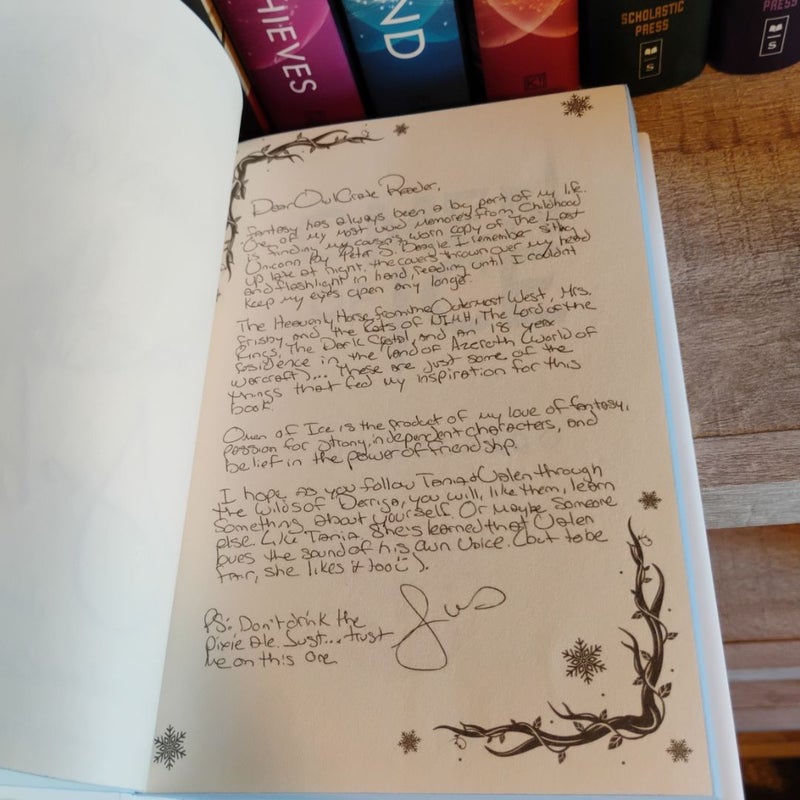 HIEVES
ND
SCHOLASTIC
PRESS
S
PRESS
S
Dear OwlCrate Reader,
Fantasy has always been a big part of my life.
One of my most vivid memories from childhood
is finding my cousin's worn copy of The Last
Unicorn by Peter S. Beagle. I remember sitting
up late at night, the covers thrown over my head
and flashlight in hand, reading until I couldn't
keep my eyes open any longer.
The Heavenly Horse from the Outermost West, Mrs.
Frisby and the Rats of NIMH, The Lord of the
Rings, The Dark Crystal, and an 18 year
residence in the land of Azeroth (World of
Warcraft)... These are just some of the
things that fed my inspiration for this
book.
Omen of Ice is the product of my love of fantasy,
passion for strong, independent characters, and
belief in the power of friendship.
I hope as you follow Tania & Valen through
the wilds of Derriga, you will, like them, learn
something about yourself. Or maybe someone
else. Like Tania. She's learned that Valen
loves the sound of his own voice. (but to be
fair, she likes it too :) ).
PS: Don't drink the
Pixie Ale. Just... trust
me on this one